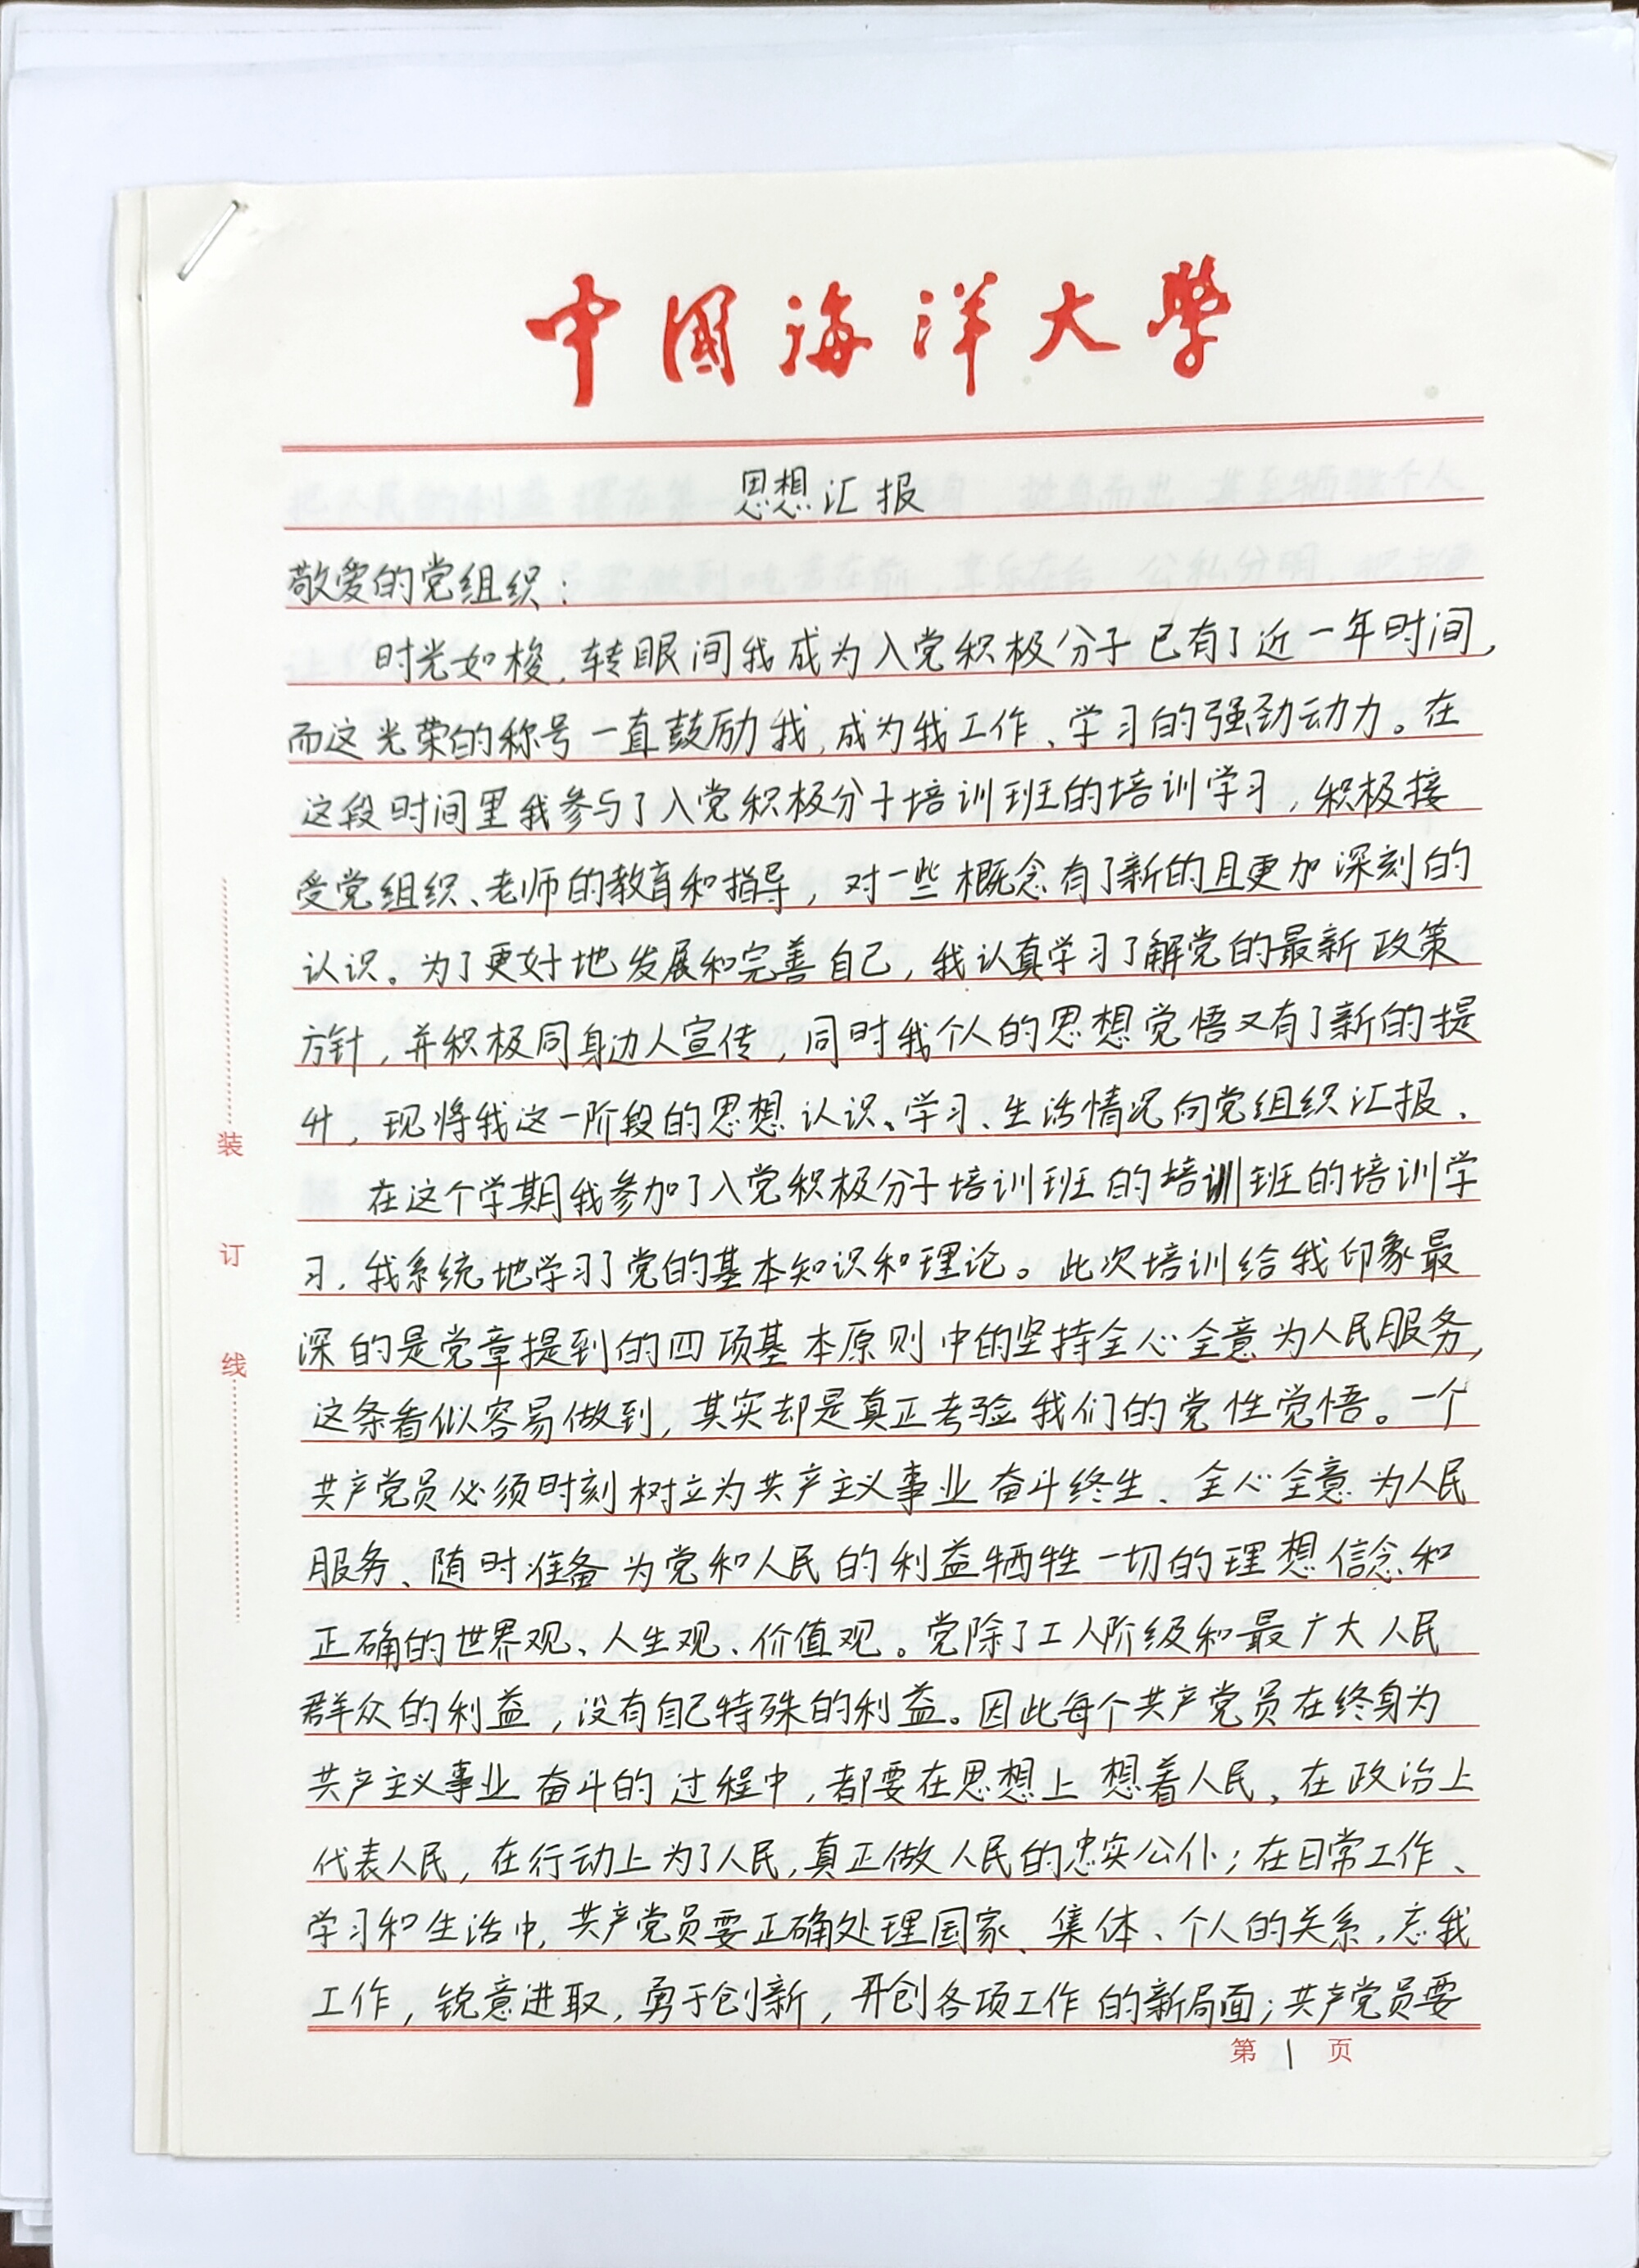 中國海洋大學
思想汇报
敬爱的党组织：
时光如梭，转眼间我成为入党积极分子已有了近一年时间，
而这光荣的称号一直鼓励我，成为我工作、学习的强劲动力。在
这段时间里我参与了入党积极分子培训班的培训学习，积极接
受党组织、老师的教育和指导，对一些概念有了新的且更加深刻的
认识。为了更好地发展和完善自己，我认真学习了解党的最新政策
方针，并积极同身边人宣传，同时我个人的思想觉悟又有了新的提
升，现将我这一阶段的思想认识、学习、生活情况向党组织汇报、
在这个学期我参加了入党积极分子培训班的培训班的培训学
习，我系统地学习了党的基本知识和理论。此次培训给我印象最
深的是党章提到的四项基本原则中的坚持全心全意为人民服务，
这条看似容易做到，其实却是真正考验我们的党性觉悟。一个
共产党员必须时刻树立为共产主义事业奋斗终生、全心全意为人民
服务、随时准备为党和人民的利益牺牲一切的理想信念和
正确的世界观、人生观、价值观。党除了工人阶级和最广大人民
群众的利益，没有自己特殊的利益。因此每个共产党员在终身为
共产主义事业奋斗的过程中，都要在思想上想着人民，在政治上
代表人民，在行动上为了人民，真正做人民的忠实公仆；在日常工作、
学习和生活中，共产党员要正确处理国家、集体、个人的关系，忘我
工作，锐意进取，勇于创新，开创各项工作的新局面；共产党员要
装
订
线
第 1 页